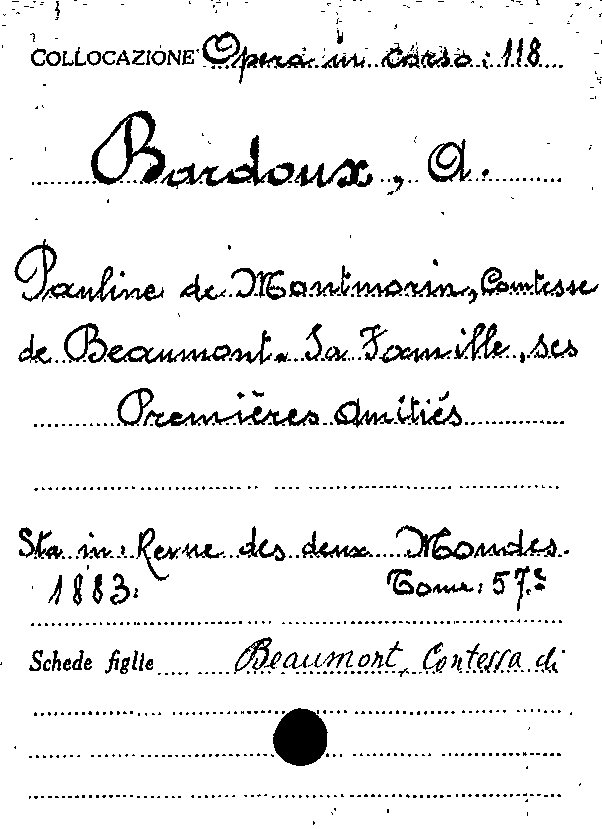 COLLOCAZIONE Opera in corso: 118
Bardoux, A.
Pauline de Montmorin, Comtesse
de Beaumont. Sa Famille, ses
Premières Amitiés
Sta in: Revue des deux Mondes.
1883. Tome: 57.e
Schede figlie Beaumont, Contessa di